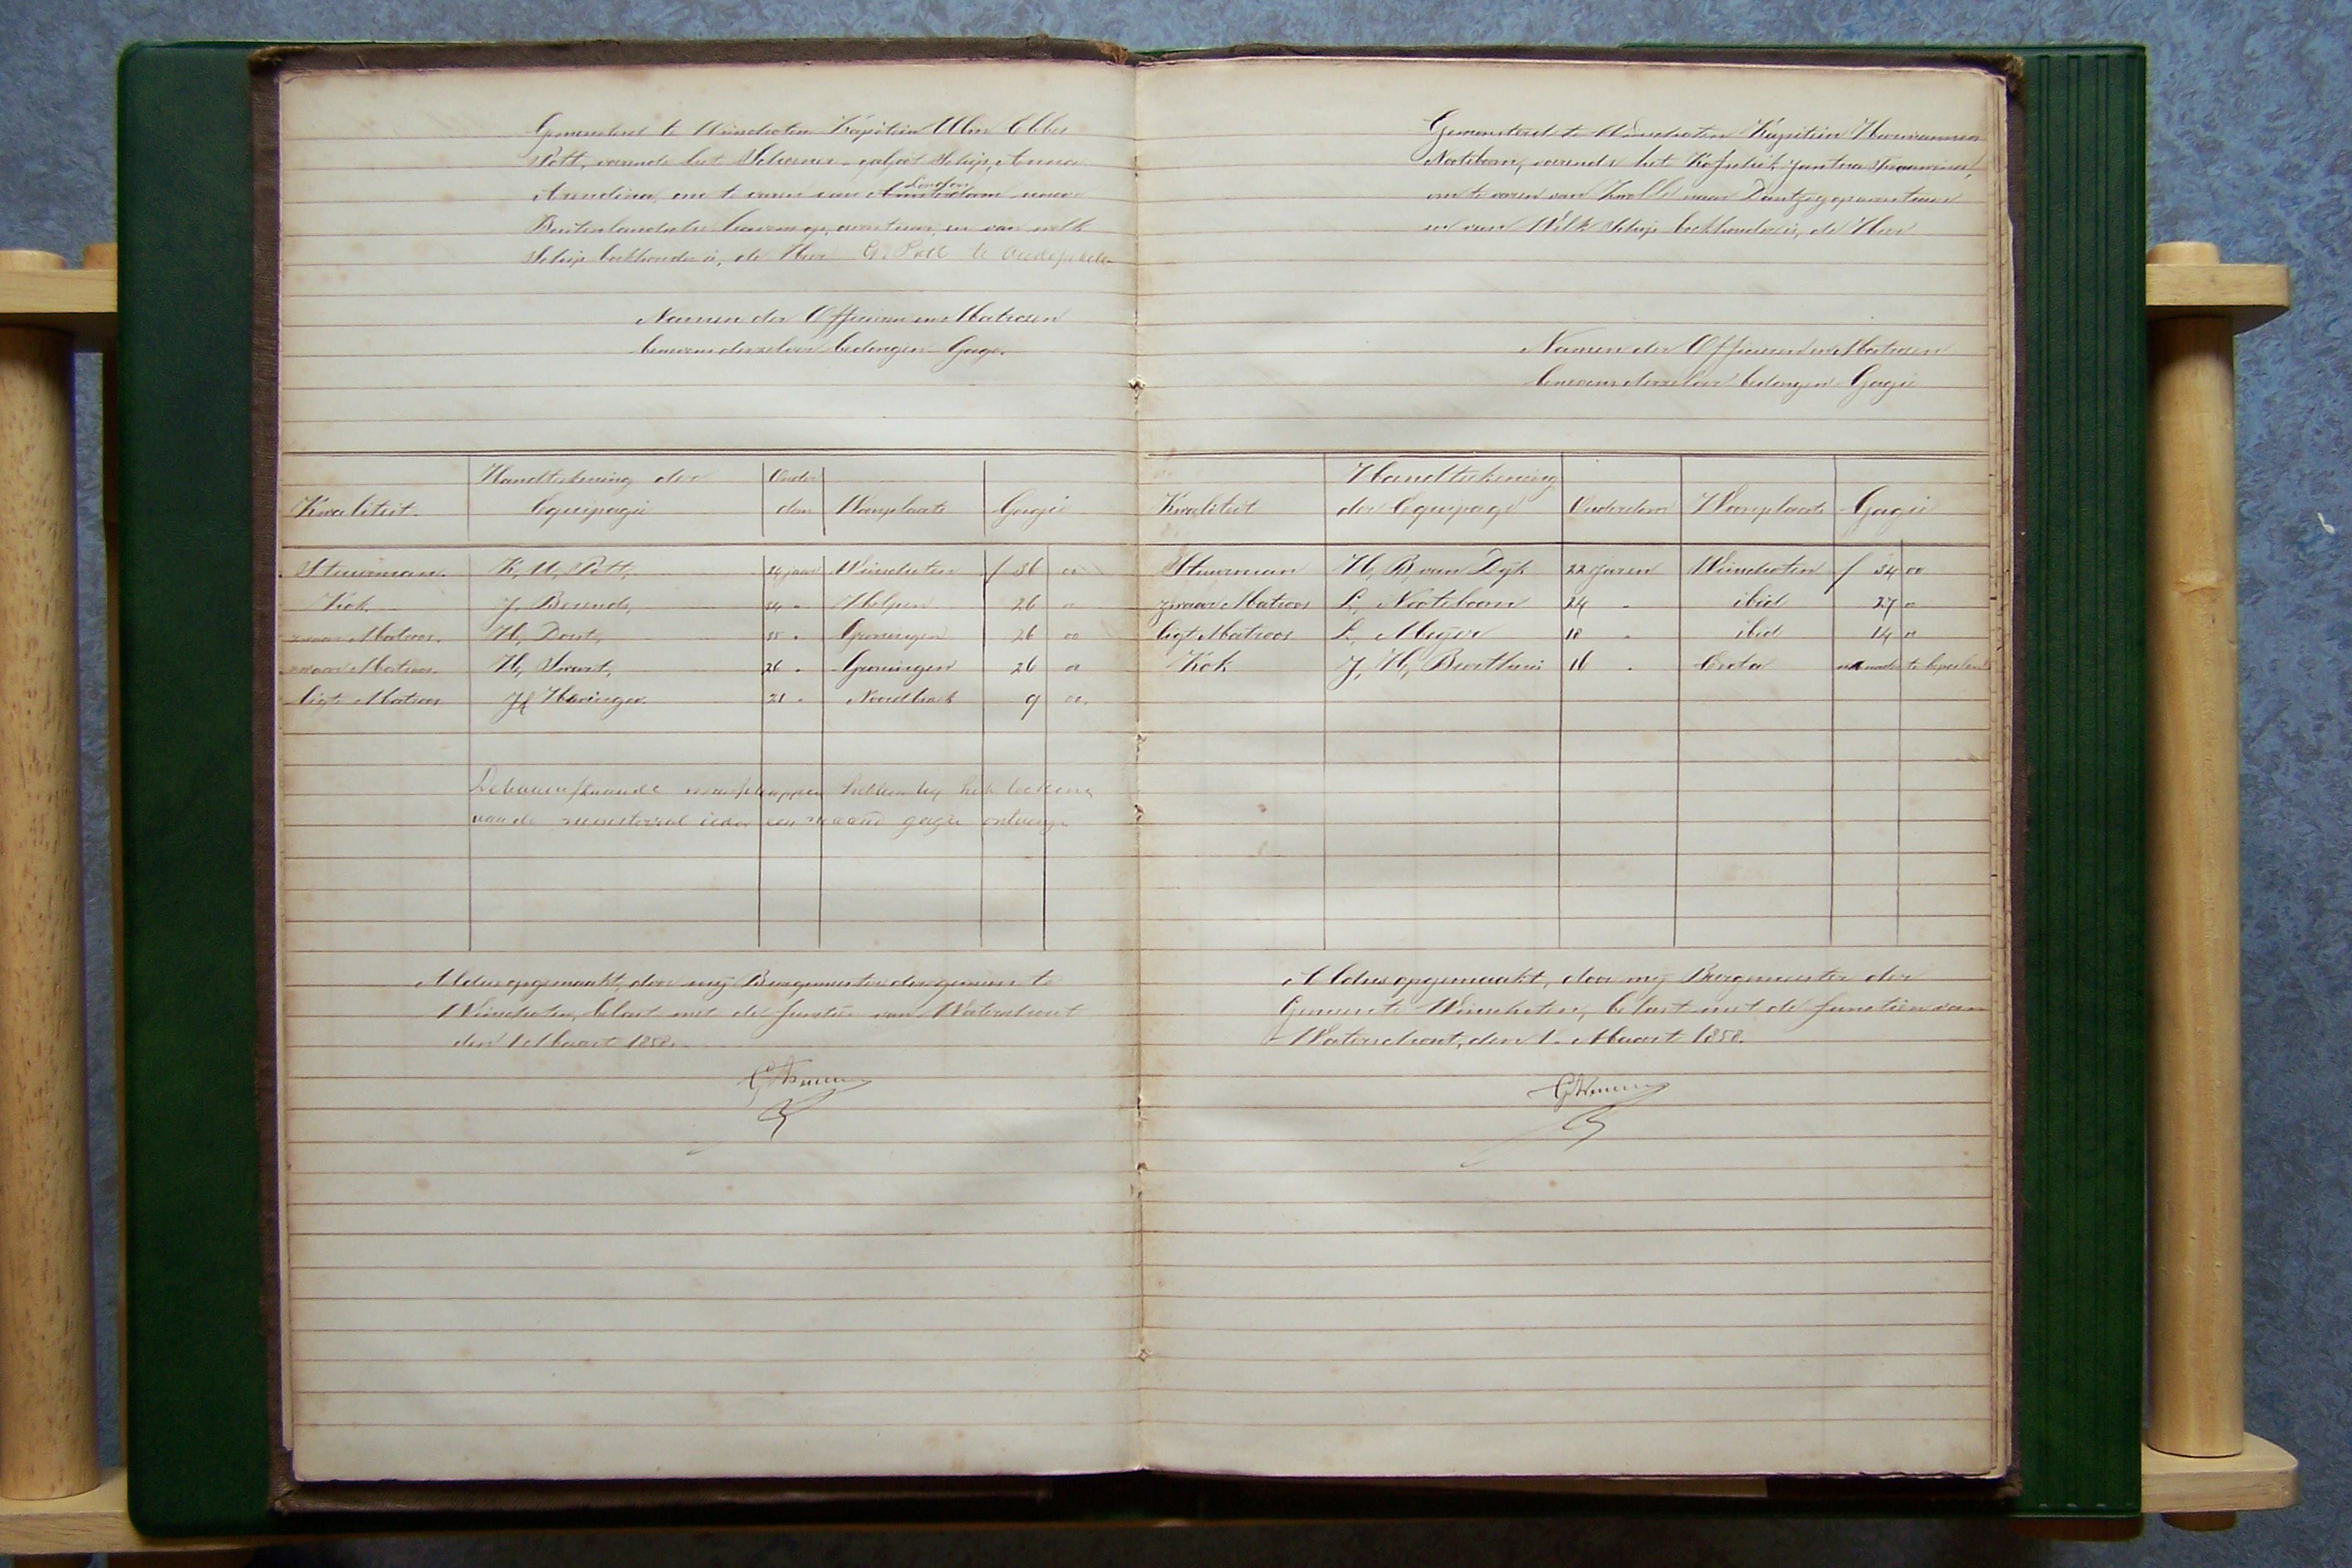 Gemonsterd te Winschoten Kapitein Alm Ebbes
Pott, voerende het Schoener-galjoot Schip, Anna
Arendina, om te varen van Amsterdam London naar
Buitenlandsche havens op avontuur, en van welk
Schip boekhouder is, de Heer G. Pott te Oude Pekela
Namen der Officieren en Matrozen
benevens derzelver bedongen Gage.
Handteekening der Ouder
Kwaliteit. Equipagie dom Woonplaats Gagie
Stuurman. K, U, Pott, 24 jaar Winschoten f 36 00
Kok J, Berends, 54 " Helpen 26 00
zwaar Matroos. H, Dost, 35 " Groningen 26 00
zwaar Matroos. H, Swart, 26 " Groningen 26 00
ligte Matroos J Havinga 21 " Noordbroek 9 00
De bovenstaande manschappen hebben bij het teekenen
van de monsterrol ieder een maand gagie
Aldus opgemaakt, door mij Burgemeester der gemeente
Winschoten, belast met de functien van Waterschout
den 1 Maart 1858.
Gemonsterd te Winschoten Kapitein Hermannus
Nooteboom, voerende het Kofschip, Jantina
om te varen van Zwolle naar Dantzig op avontuur
en van Welk Schip boekhouder is, de Heer
Namen der Officieren en Matrozen
benevens derzelver bedongen Gagie
Handteekening
Kwaliteit der Equipage Ouderdom Woonplaats Gagie
Stuurman H, B, van Dijk 22 Jaren Winschoten f 34 00
zwaar Matroos L, Nooteboom 24 " ibid 27 00
ligt Matroos L, Meijer 18 " ibid 14 00
Kok J, H, Boerthuis 16 " Beerta nader te bepalen
Aldus opgemaakt, door mij Burgemeester der
Gemeente Winschoten, belast met de functien van
Waterschout, den 1. Maart 1858.